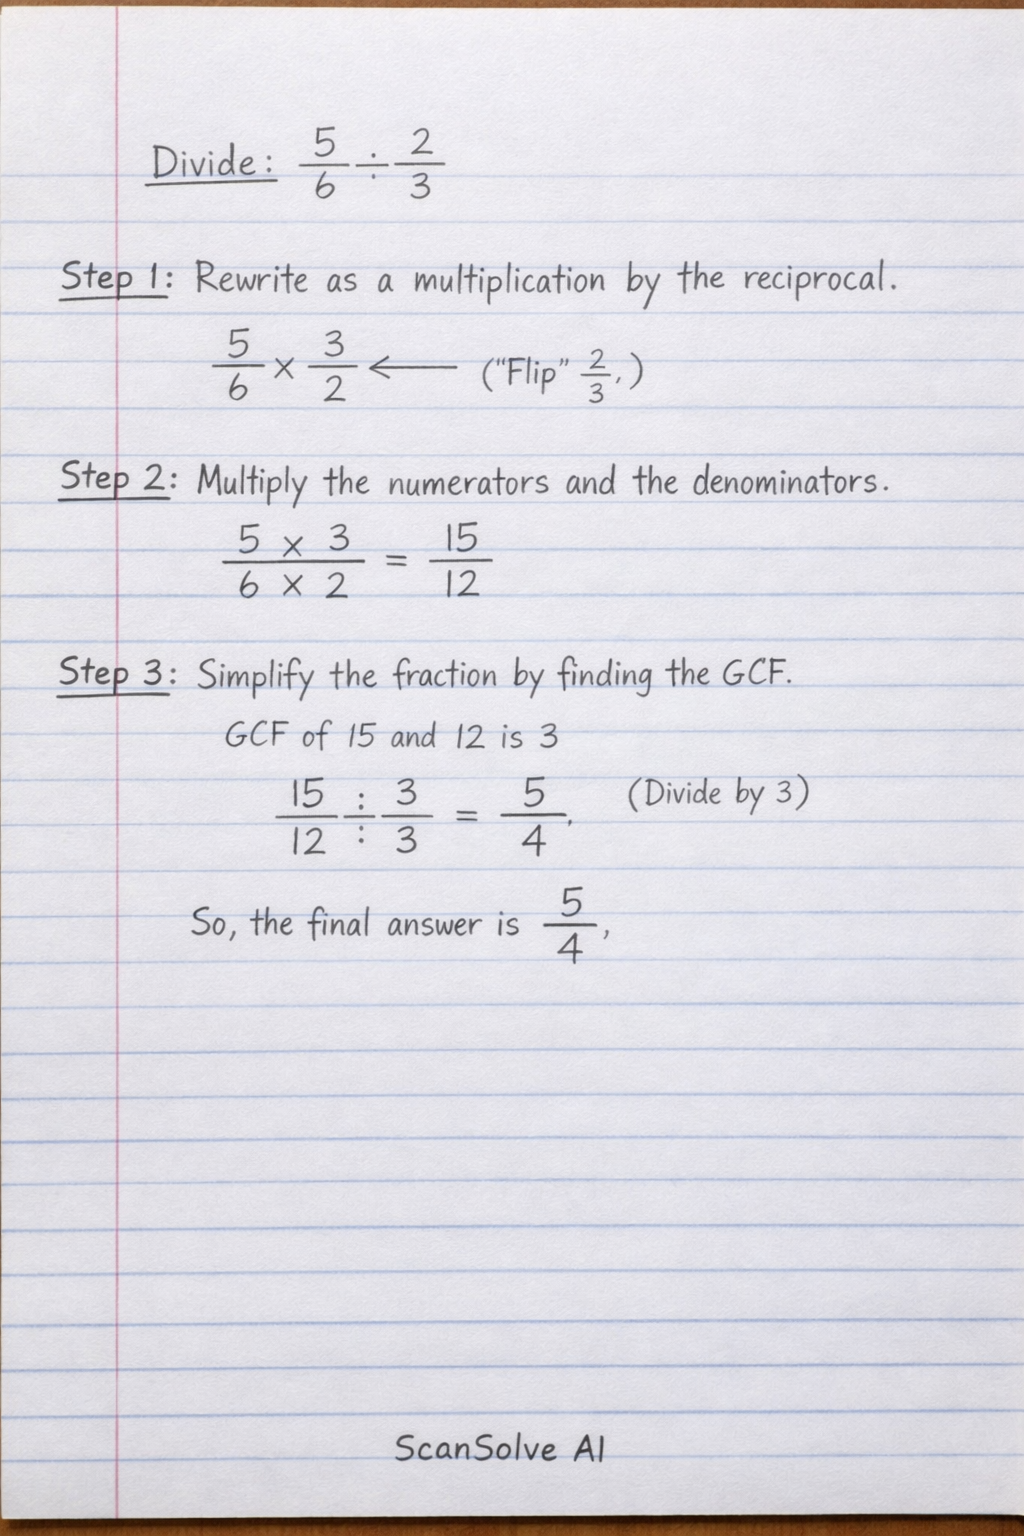 Divide: 5/6 ÷ 2/3
Step 1: Rewrite as a multiplication by the reciprocal.
5/6 × 3/2 ← ("Flip" 2/3.)
Step 2: Multiply the numerators and the denominators.
5 × 3 / 6 × 2 = 15/12
Step 3: Simplify the fraction by finding the GCF.
GCF of 15 and 12 is 3
15/12 ÷ 3/3 = 5/4. (Divide by 3)
So, the final answer is 5/4,
ScanSolve AI